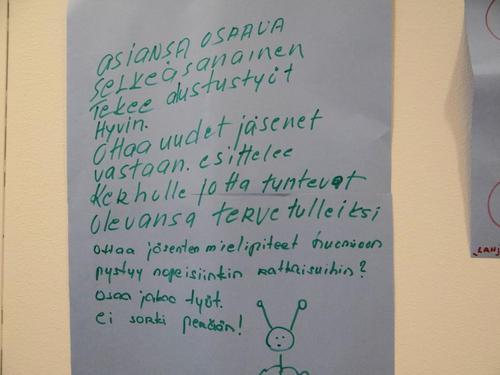 ASIANSA OSAAVA
SELKEÄSANAINEN
TEKEE alustustyöt
Hyvin.
Ottaa uudet jäsenet
vastaan. esittelee
Kerholle jotta tuntevat
olevansa tervetulleiksi
Ottaa jäsenten mielipiteet huomioon
pystyy nopeisiinkin ratkaisuihin?
Osaa jakaa työt.
ei sorki perään!
LANJ